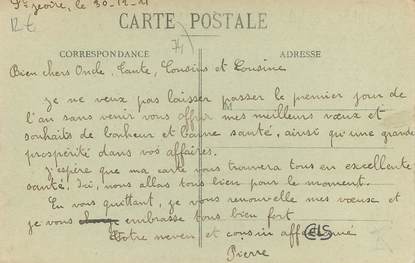 St Jeoire, le 30-12-21
CARTE POSTALE
12 €
74
CORRESPONDANCE
ADRESSE
Bien chers Oncle, Tante, Cousins et Cousine
Je ne veux pas laisser passer le premier jour de
l'an sans venir vous offrir mes meilleurs vœux et
souhaits de bonheur et bonne santé, ainsi qu'une grande
prospérité dans vos affaires.
J'espère que ma carte vous trouvera tous en excellente
santé. Ici, nous allons tous bien pour le moment.
En vous quittant, je vous renouvelle mes vœux et
je vous embrasse tous bien fort
Votre neveu et cousin affectionné
Pierre